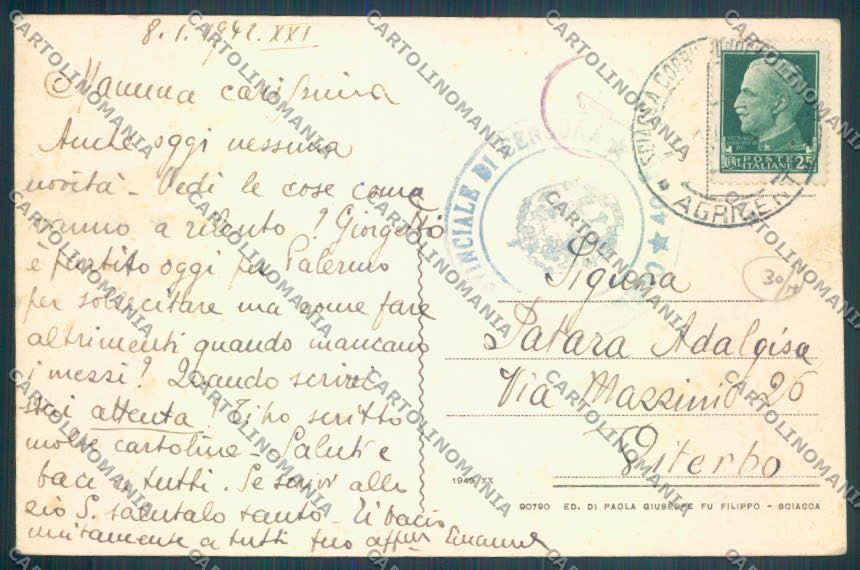 8.1.1942.XXI
Mamma carissima
Anche oggi nessuna
novità - Vedi le cose come
vanno a rilento? Giorgetto
è partito oggi per Palermo
per sollecitare ma come fare
altrimenti quando mancano
i mezzi? Quando scrivi
stai attenta. Ti ho scritto
molte cartoline - Saluti e
baci a tutti. Se scrivi allo
zio S. salutalo tanto - Ti bacio
unitamente a tutti tuo aff.
SCIACCA
AGRIGENTO
POSTE
ITALIANE
CENT 25
VINCIALE DI CENSURA
1
30/
Signora
Patara Adalgisa
Via Mazzini 26
Viterbo
1942 XX
90790 ED. DI PAOLA GIUSEPPE FU FILIPPO - SCIACCA
CARTOLINOMANIA